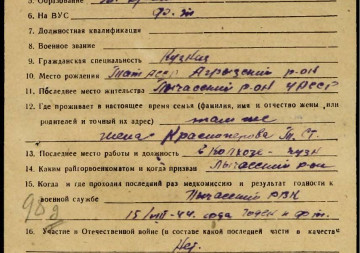 5. Образование
6. На ВУС
7. Должностная квалификация
8. Военное звание
9. Гражданская специальность Кузнец
10. Место рождения Тат АССР Агрызский р-он
11. Последнее место жительства Пычасский р-он УАССР
12. Где проживает в настоящее время семья (фамилия, имя и отчество жены или
родителей и точный адрес) там же
жена Т. Ст.
13. Последнее место работы и должность
14. Каким райгорвоенкоматом и когда призван Пычасский рвк
15. Когда и где проходил последний раз медкомиссию и результат годности к
военной службе Пычасский РВК
15/VIII-44 года годен к ф. т.
16. Участие в Отечественной войне (в составе какой последней части в качестве
Нет.